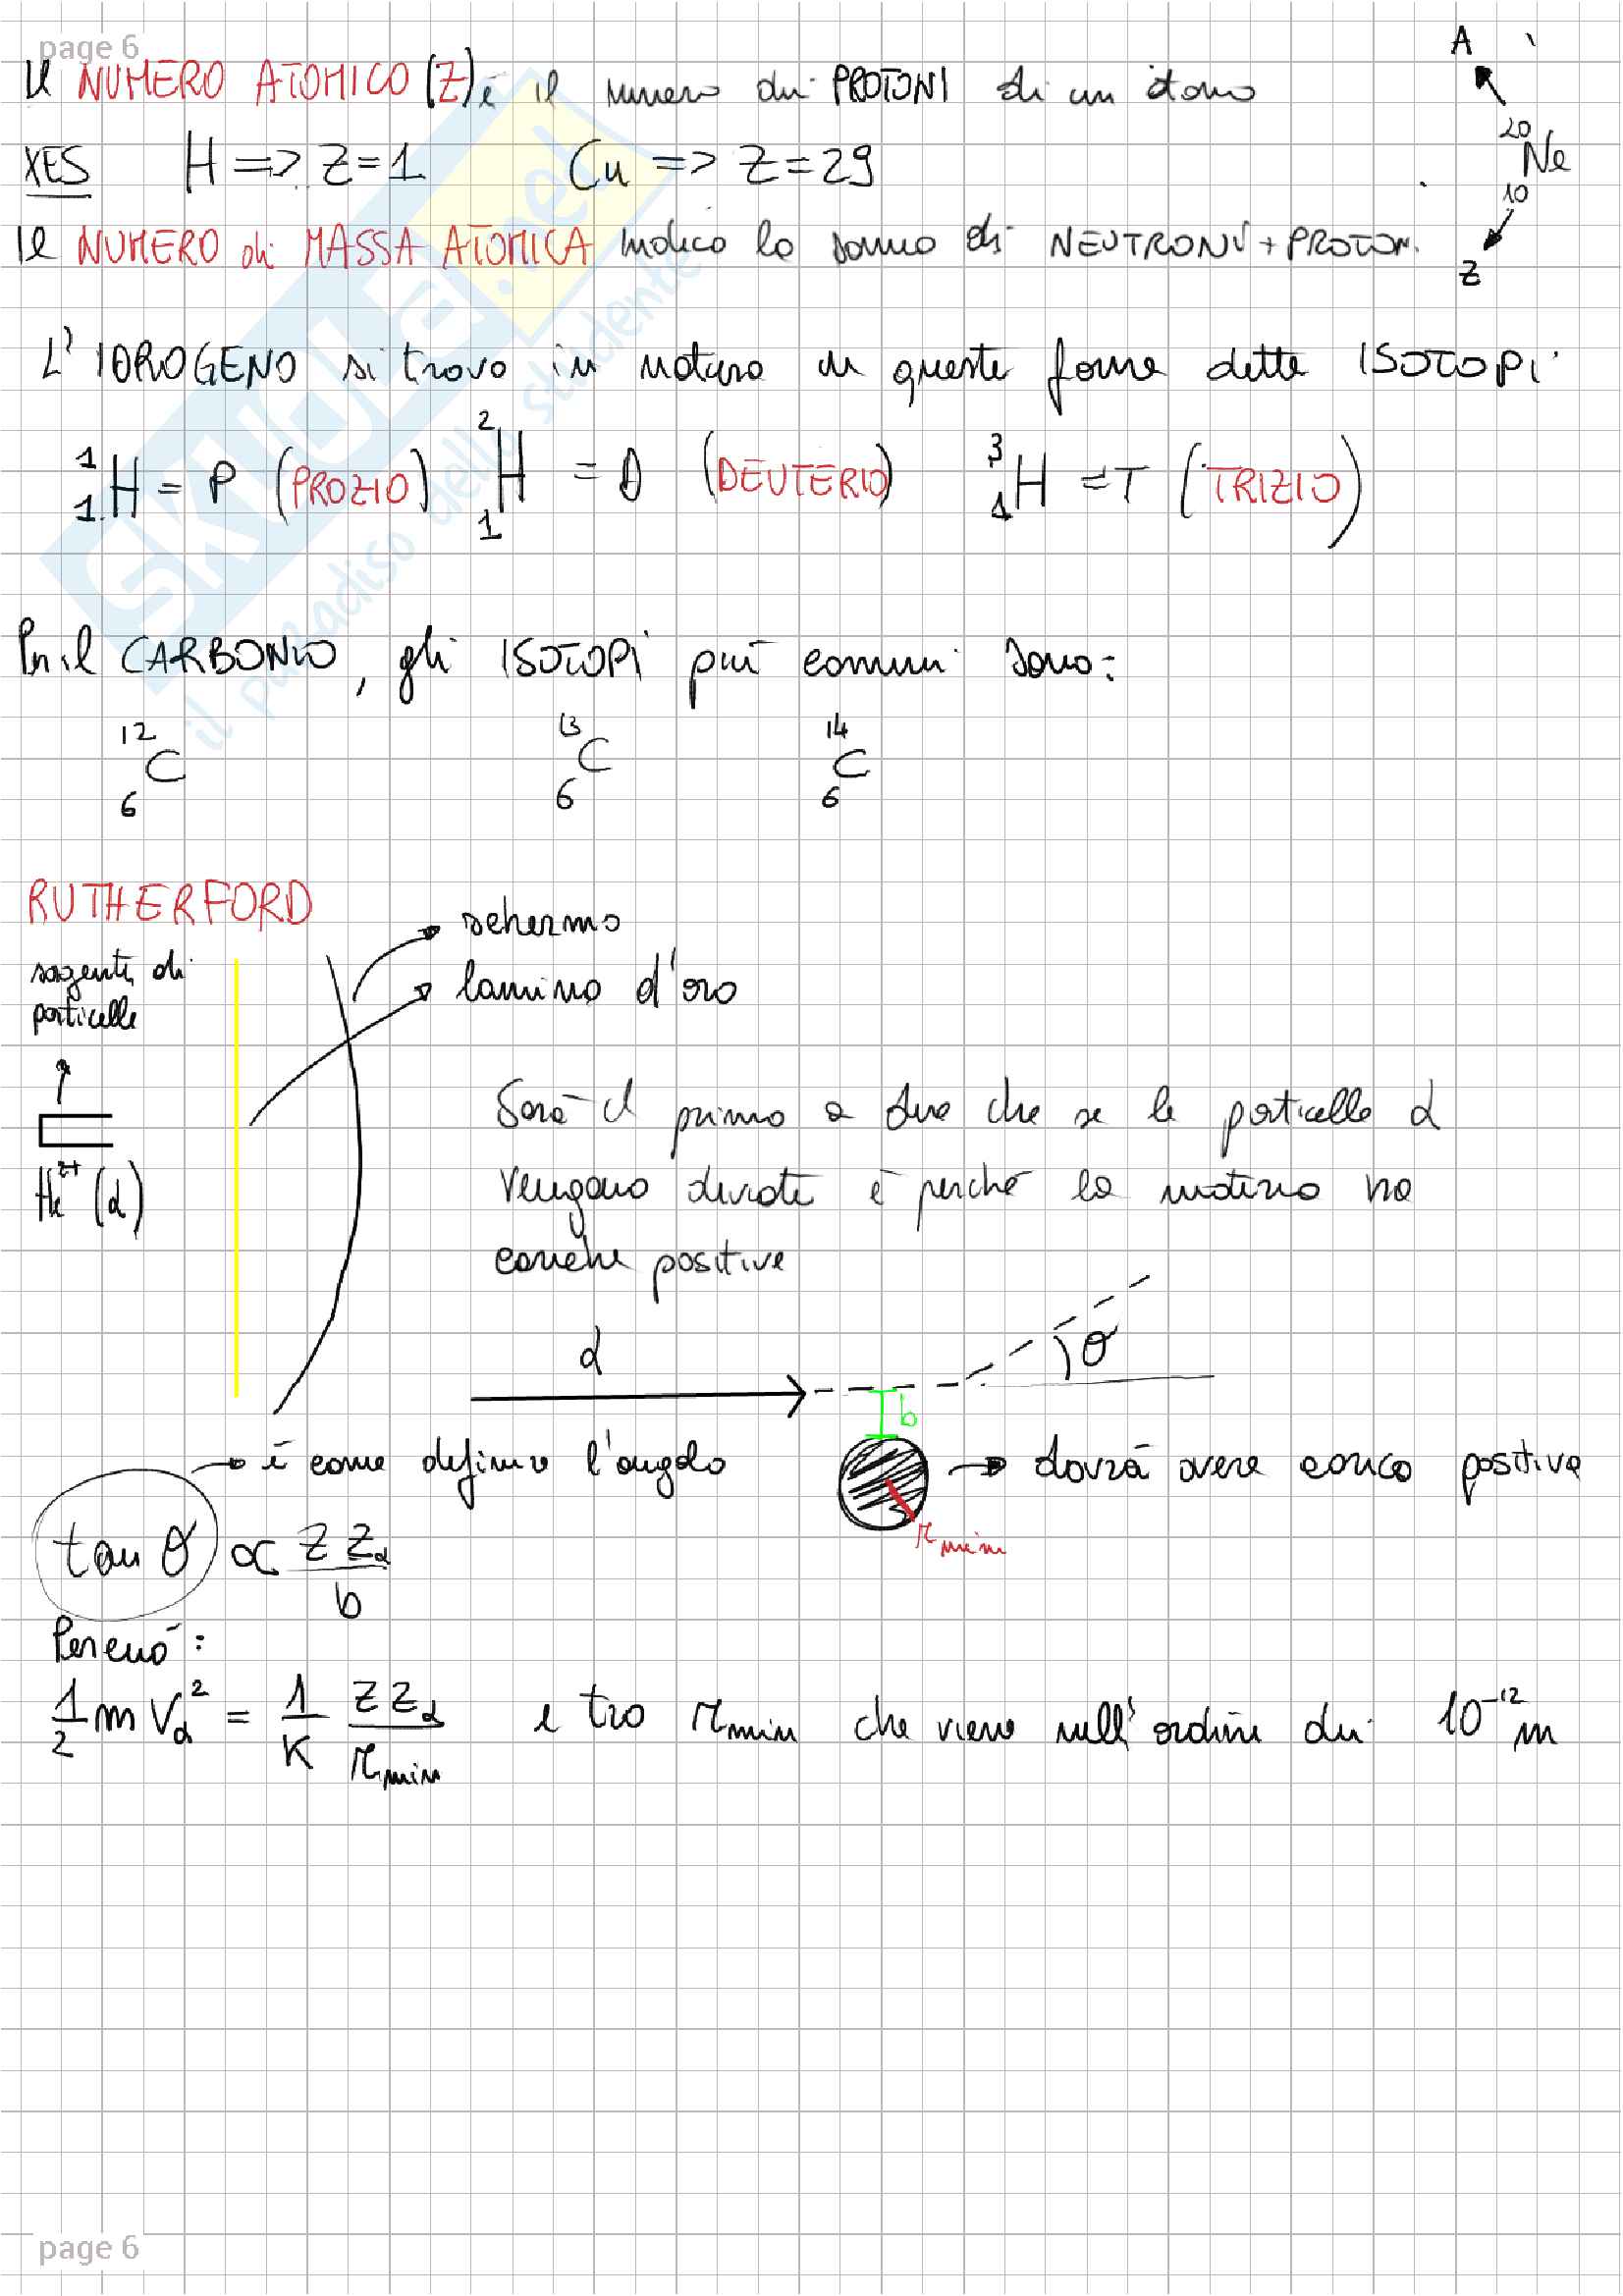 page 6
Il NUMERO ATOMICO (Z) è il numero di PROTONI di un atomo
XES H => Z=1 Cu => Z=29
A
20
Ne
10
Z
Il NUMERO di MASSA ATOMICA indica la somma di NEUTRONI + PROTONI.
L'IDROGENO si trova in natura in queste forme dette ISOTOPI
¹₁H = P (PROZIO) ²₁H = D (DEUTERIO) ³₁H = T (TRIZIO)
Per il CARBONIO, gli ISOTOPI più comuni sono:
¹²₆C ¹³₆C ¹⁴₆C
RUTHERFORD
schermo
sorgente di
particelle
lamina d'oro
He²⁺ (α)
Sarà il primo a dire che se le particelle α
vengano deviate è perché la materia ha
cariche positive
α
θ
b
→ è come definire l'angolo
→ dovrà avere carica positiva
r min
tan θ ∝ Z Zα / b
Perciò:
1/2 m Vα² = 1/K Z Zα / r min e tro r min che viene nell'ordine di 10⁻¹² m
SKUOLA.net
il paradiso dello studente
page 6